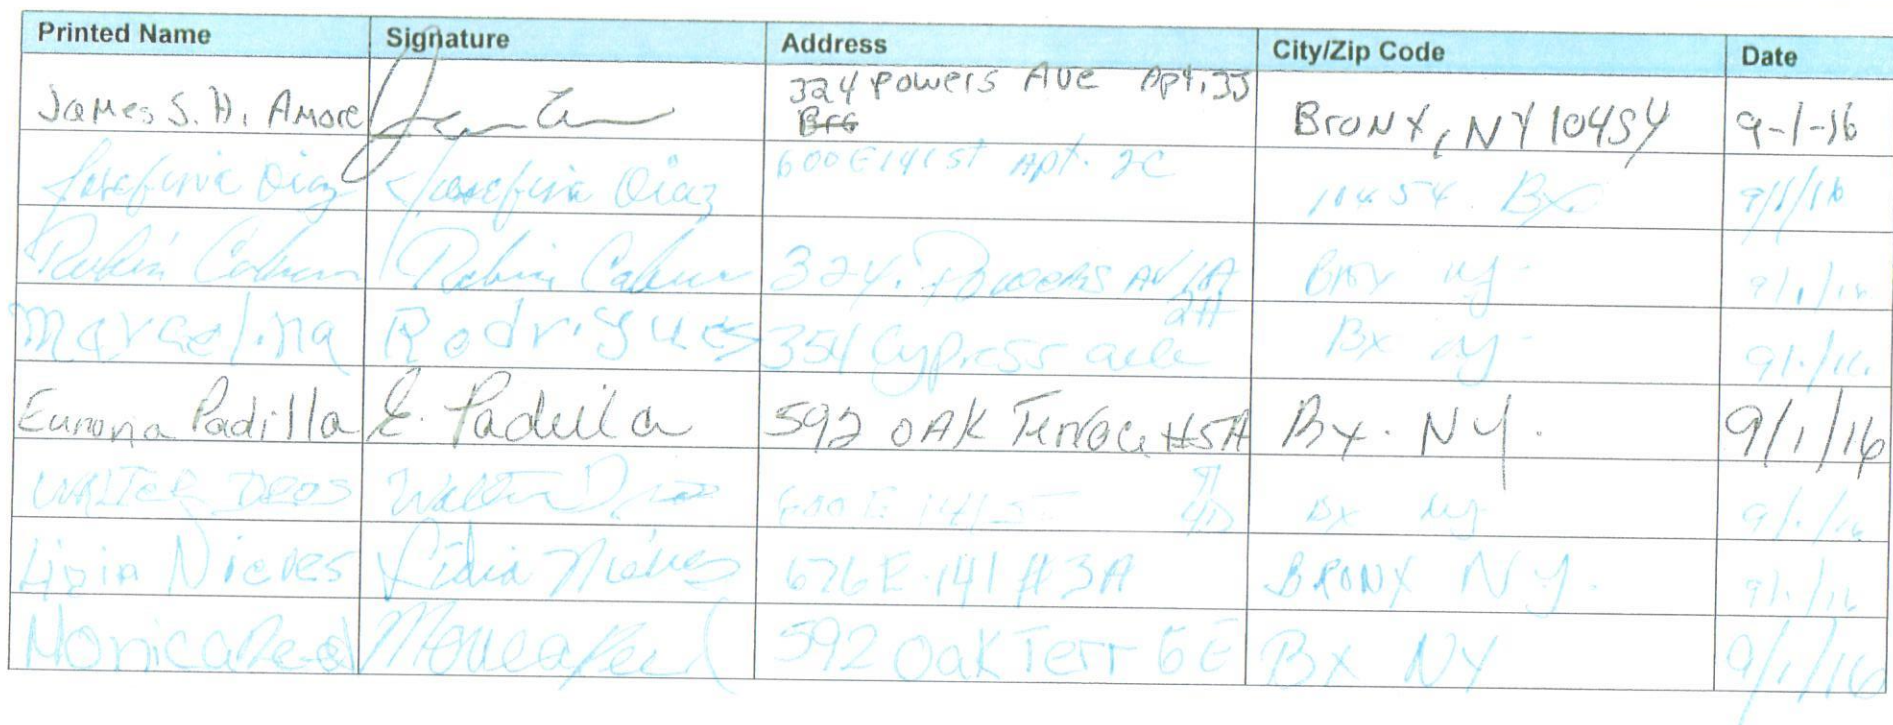 Printed Name Signature Address City/Zip Code Date
James S. H. Amore 324 Powers Ave Apt. 33 Bronx, NY 10454 9-1-16
Josefina Diaz Josefina Diaz 600 E 141 st Apt. 2C 10454 Bx. 9/1/16
324. Powers AV 9/1/16
Marcelina Rodrigues 354 Cypress Bx ny 9/1/16
Padilla E. Padilla 592 OAK Terrace #5A Bx. NY. 9/1/16
WALTER Walter 600 E 141 ST Bx ny 9/1/16
Lidia Nieves Lidia Nieves 676 E. 141 #3A BRONX NY. 9/1/16
Monica Monica 592 Oak Terr 6E Bx NY 9/1/16